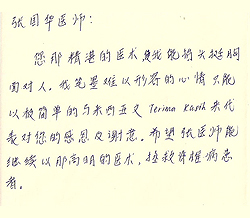 张国华医师:
您那精湛的医术是我能够抬头挺胸
面对人。我笔墨难以形容的心情只能
以极简单的马来西亚文 Terima Kasih 来代
表对您的感恩及谢意。希望张医师能
继续以那高明的医术,拯救脊椎病患
者。